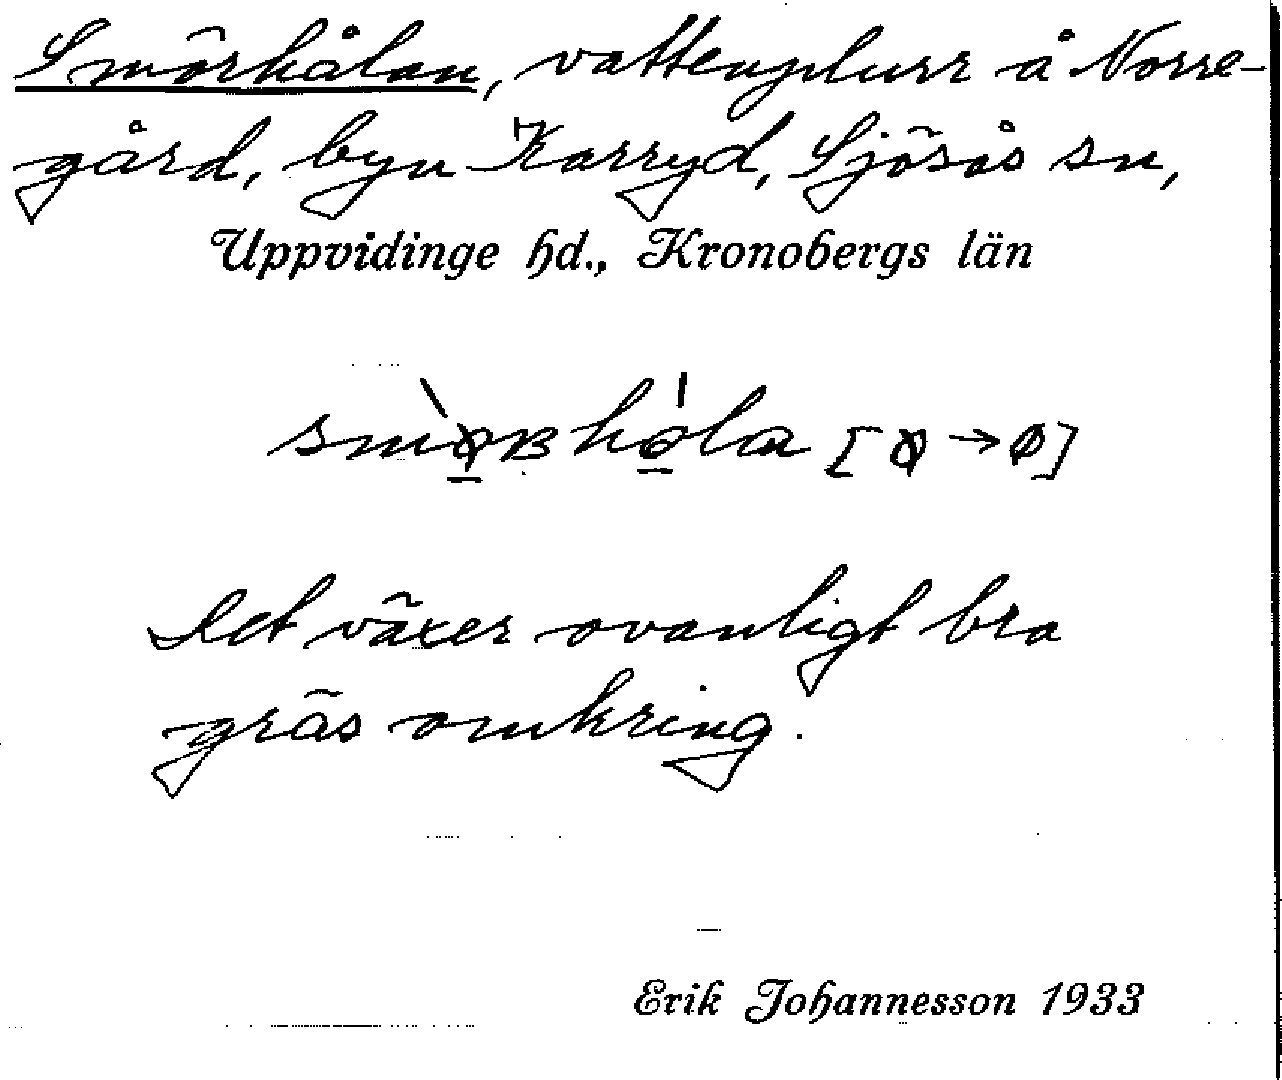 Smörhålan, vattenplurr å Norre-
gård, byn Karryd, Sjösås sn,
Uppvidinge hd., Kronobergs län
Det växer ovanligt bra
gräs omkring.
Erik Johannesson 1933